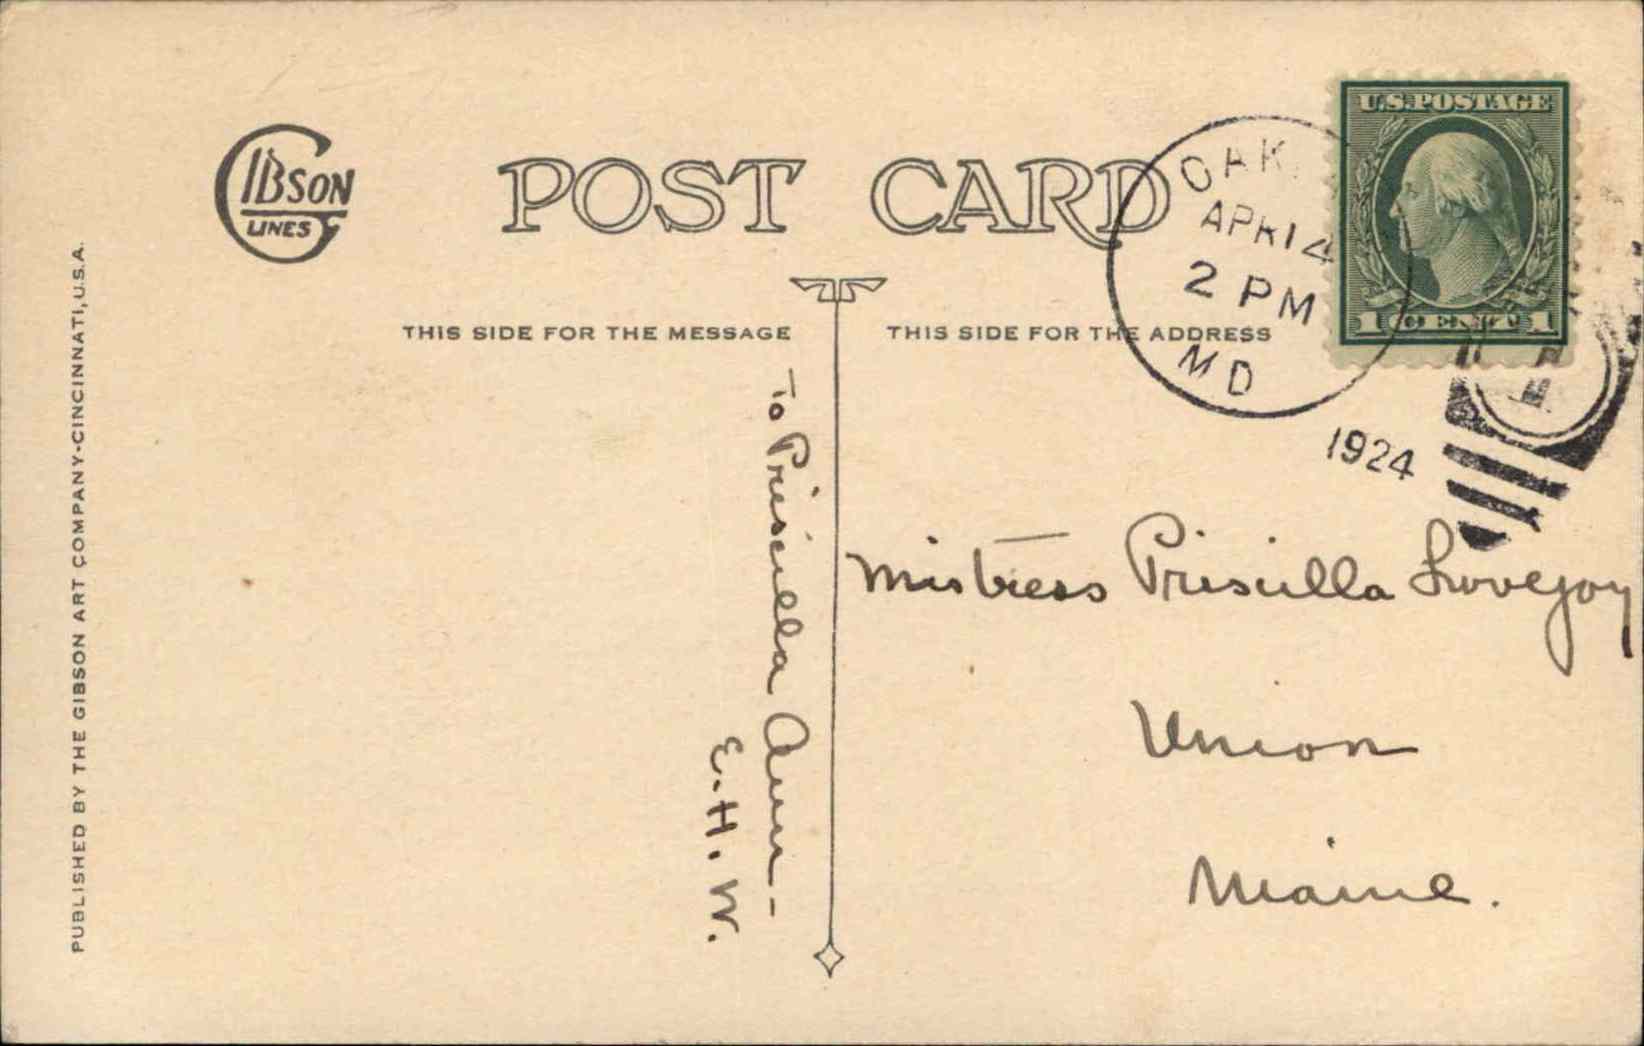 GIBSON
LINES
POST CARD
THIS SIDE FOR THE MESSAGE
THIS SIDE FOR THE ADDRESS
OAK
APR 14
2 PM
MD
1924
U.S. POSTAGE
1 CENT 1
To Priscilla Ann -
E. H. W.
Mistress Priscilla Lovejoy
Union
Maine.
PUBLISHED BY THE GIBSON ART COMPANY-CINCINNATI, U.S.A.